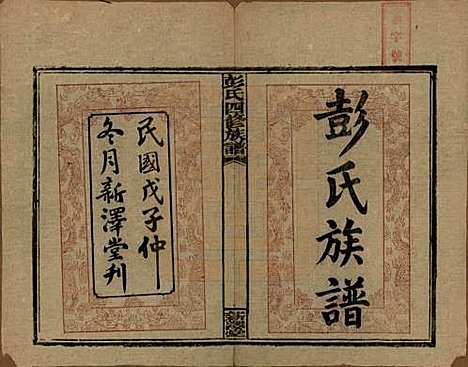 彭氏族譜
彭氏四修族譜
新澤堂
民國戊子仲
冬月新澤堂刋